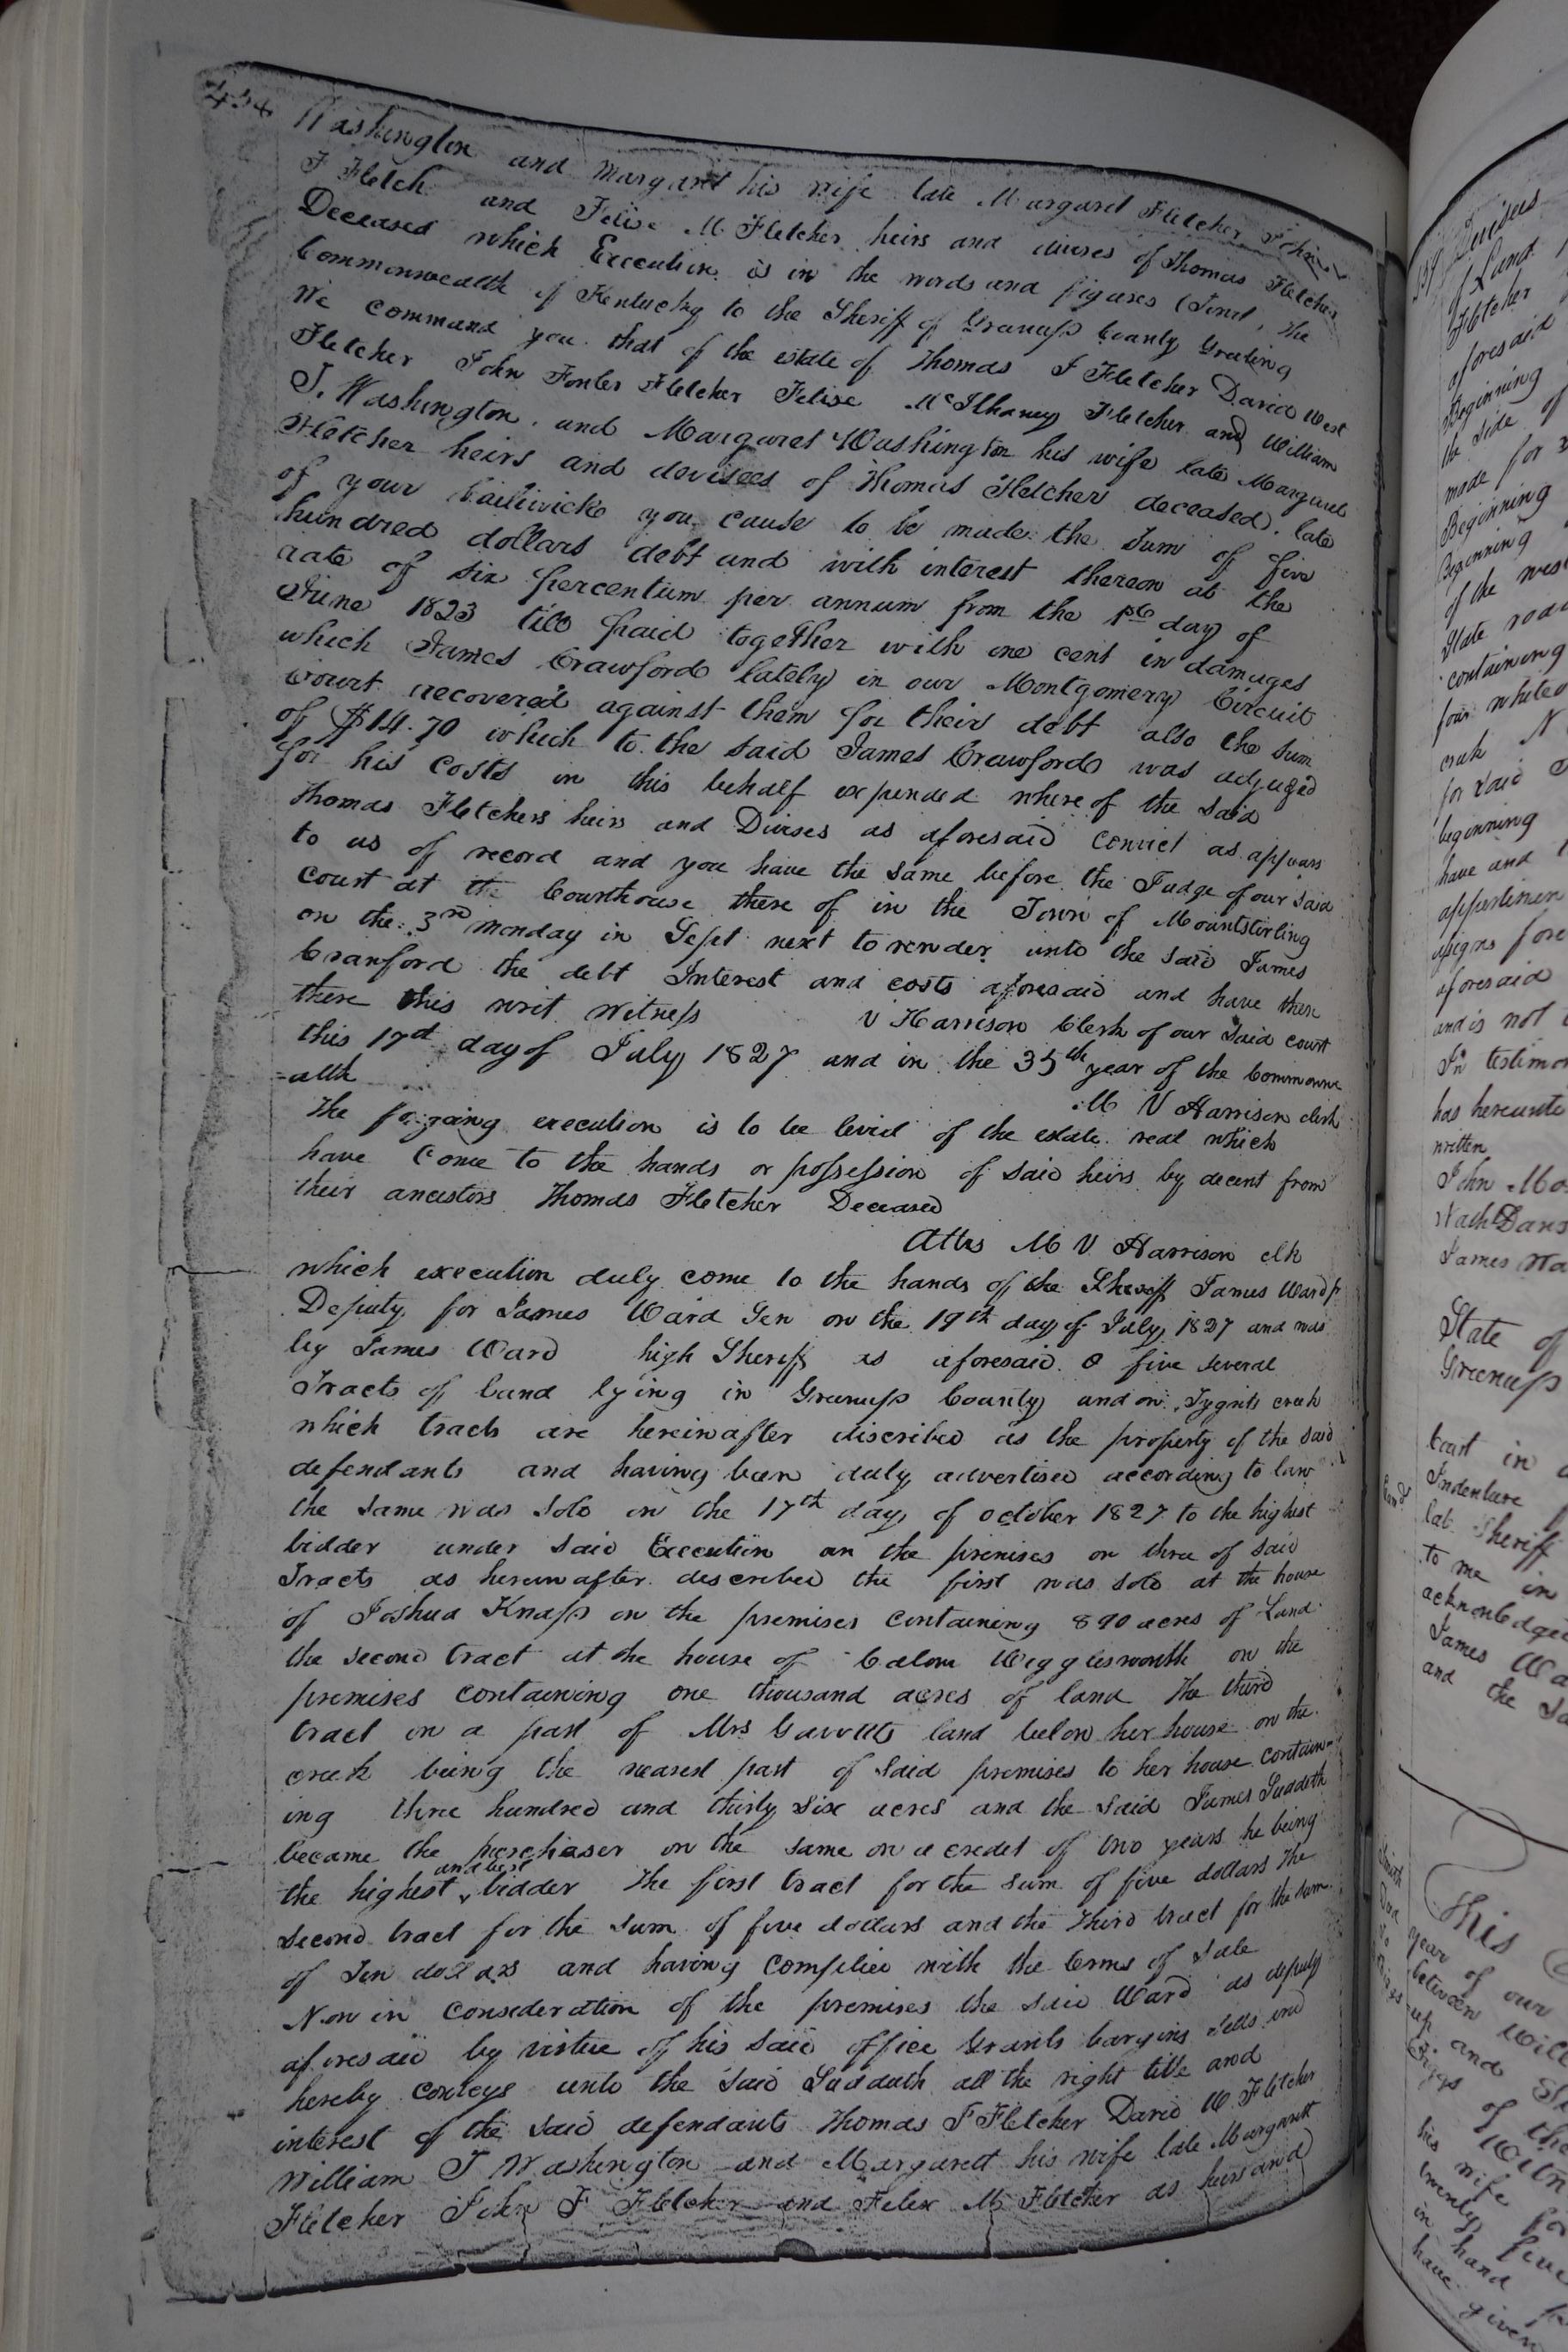 454
Washington and Margaret his wife late Margaret Fletcher John
F Fletch and Felix M Fletcher heirs and divises of Thomas Fletcher
Deceased which Execution is in the words and figures (Towit, The
Commonwealth of Kentucky to the Sheriff of Greenup County Greeting
We command you that of the estate of Thomas F Fletcher David West
Fletcher John Fowler Fletcher Felise McIlhaney Fletcher and William
T. Washington, and Margaret Washington his wife late Margaret
Fletcher heirs and devisees of Thomas Fletcher deceased, late
of your bailiwicke you cause to be made the Sum of five
hundred dollars debt and with interest thereon at the
rate of six percentum per annum from the 1st day of
June 1823 till paid together with one cent in damages
which James Crawford lately in our Montgomery Circuit
Court recovered against them for their debt also the sum
of $14.70 which to the said James Crawford was adjuged
for his costs in this behalf expended where of the said
Thomas Fletchers heirs and Divises as aforesaid convict as appears
to us of record and you have the same before the Judge of our said
court at the Courthouse there of in the Town of Mountsterling
on the 3rd monday in Sept next to render unto the said James
Cranford the debt Interest and costs aforesaid and have then
there this writ Witness V Harrison Clerk of our said court
this 17d day of July 1827 and in the 35th year of the Commonwe
=alth
M V Harrison clerk
The forgoing execution is to be levid of the estate real which
have Come to the hands or possession of said heirs by decent from
their ancestors Thomas Fletcher Deceased
Attes M V Harrison clk
which execution duly come to the hands of the Sheriff James Ward Jr
Deputy for James Ward Sen on the 19th day of July 1827 and was
by James Ward high Sheriff as aforesaid five several
Tracts of land lying in Greenup County and on Tygrits creek
which tracts are hereinafter discribed as the property of the said
defendants and having been duly advertised according to law
the same was sold on the 17th day of october 1827 to the highest
bidder under said Execution on the premises on three of said
Tracts as hereinafter described the first was sold at the house
of Joshua Knap on the premises containing 890 acres of Land
the second tract at the house of Wigglesworth on the
premises containing one thousand acres of land the third
tract on a part of Mrs land below her house on the
creek being the nearest part of said premises to her house contain=
ing three hundred and thirty six acres and the said James Suddeth
became the purchaser on the same on a credet of two years he being
the highest and best bidder The first tract for the sum of five dollars The
second tract for the sum of five dollars and the Third tract for the sum
of Ten dollars and having complied with the terms of sale
Now in consederation of the premises the said Ward as deputy
aforesaid by virtue of his said office Grants bargins sells and
hereby conveys unto the said Suddath all the right title and
interest of the said defendants Thomas F Fletcher David W Fletcher
William T Washington and Margarett his wife late Margarett
Fletcher John F Fletcher and Felix M Fletcher as heirs and
of Land
Fletcher
aforesaid
Beginning
the side of
made for
Beginning
Beginning
of the west
State road
containing
four white
creek N
for said
beginning
have and
appurtenen
asigns fore
aforesaid
and is not
In testimon
has hereunto
written
John Ma
James Wa
State of
Greenup
Court in
Indenture
late Sheriff
to me in
acknowledged
James Wa
and the Sa
This
year of our
between Will
up and
Briggs of the
his wife for
twenty five
in hand
have given